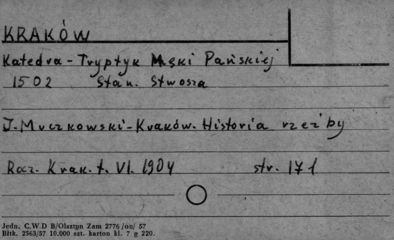 KRAKÓW
Katedra - Tryptyk Męki Pańskiej
1502 Stan. Stwosza
J. Muczkowski - Kraków. Historia rzeźby
Rocz. Krak. t. VI. 1904 str. 171
Jedn. C.W.D B/Olsztyn Zam 2776/on/ 57
Błtb. 2563/57 10.000 szt. karton kl. 7 g 220.